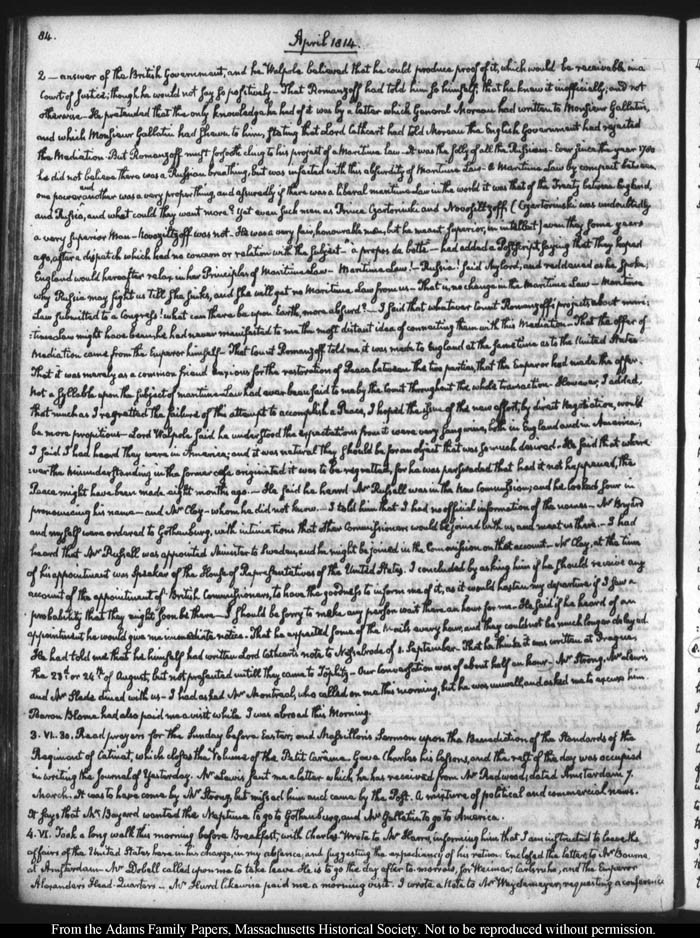 84.
April 1814.
2 — answer of the British Government, and he Walpole believed that he could produce proof of it, which would be receivable in a
Court of Justice; though he would not say so positively — That Romanzoff had told him so himself; that he knew it inofficially; and not
otherwise. He pretended that the only knowledge he had of it was by a letter which General Moreau had written to Monsieur Gallatin,
and which Monsieur Gallatin had shewn to him, stating that Lord Cathcart had told Moreau the English Government had rejected
the Mediation. But Romanzoff must forsooth cling to his project of a Maritime Law. It was the folly of all the Russians — Ever since the year 1780
he did not believe there was a Russian breathing, but was infected with this absurdity of Maritime Law. A Maritime Law by compact between
one power and another was a very proper thing, and assuredly if there was a liberal maritime law in the world it was that of the Treaty between England,
and Russia, and what could they want more? Yet even such men as Prince Czartorinski and Novosiltzoff (Czartorinski was undoubtedly
a very superior Man — Novosiltzoff was not. He was a very fair, honourable man, but he meant superior, in intellect) even they some years
ago, after a dispatch which had no concern or relation with the subject — "a propos de botte" — had added a Postscript, saying that they hoped
England would hereafter relax in her Principles of Maritime Law — Maritime Law! — Russia! said My Lord, and reddened as he spoke
why Russia may fight us till she sinks, and she will get no Maritime Law from us — That is, no change in the Maritime Law — Maritime
Law submitted to a Congress! what can there be upon Earth, more absurd! — I said that whatever Count Romanzoff's projects about mari-
time law might have been, he had never manifested to me the most distant idea of connecting them with this Mediation — That the offer of
Mediation came from the Emperor himself — That Count Romanzoff told me it was made to England at the same time as to the United States
That it was merely as a common friend anxious for the restoration of Peace between the two parties, that the Emperor had made the offer.
Not a syllable upon the subject of maritime Law had ever been said to me by the Count throughout the whole transaction. However, I added,
that much as I regretted the failure of this attempt to accomplish a Peace, I hoped the issue of the new effort, by direct Negotiation, would
be more propitious — Lord Walpole said he understood the expectations from it were very sanguine, both in England and in America;
I said I had heard they were in America; and it was natural they should be for an object that was so much desired. He said that where
-ver the misunderstanding in the former case originated it was to be regretted, for he was persuaded that had it not happened, the
Peace might have been made eight months ago. — He said he heard Mr Russell was in the New Commission; and he looked sour in
pronouncing his name — and Mr Clay — whom he did not know. — I told him that I had no official information of the names — Mr Bayard
and myself were ordered to Gothenburg, with intimations that other Commissioners would be joined with us, and meet us there. — I had
heard that Mr Russell was appointed Minister to Sweden, and he might be joined in the Commission on that account — Mr Clay, at the time
of his appointment was Speaker of the House of Representatives of the United States. I concluded by asking him if he should receive any
account of the appointment of British Commissioners, to have the goodness to inform me of it, as it would hasten my departure if I saw a
probability that they might soon be there — I should be sorry to make any person wait there an hour for me. He said if he heard of an
appointment he would give me immediate notice. That he expected some of the Mails every hour, and they could not be much longer delayed
He had told me that he himself had written Lord Cathcart's note to Nesselrode of 1. September. That he thinks it was written at Prague,
the 23d or 24th of August, but not presented untill they came to Töplitz — Our conversation was of about half an hour — Mr Strong, Mr Lewis,
and Mr Slade dined with us — I had asked Mr Montreal, who called on me this morning, but he was unwell, and asked me to excuse him
Baron Blome had also paid me a visit while I was abroad this Morning.
3. VI. 30. Read prayers for the Sunday before Easter, and Massillon's Sermon upon the Benediction of the Standards of the
Regiment of Catinat, which closes the Volume of the Petit Careme. Gave Charles his lessons, and the rest of the day was occupied
in writing the Journal of Yesterday. Mr Lewis sent me a letter which he has received from Mr Redwood, dated Amsterdam 7.
March. It was to have come by Mr Strong, but missed him and came by the Post. A mixture of political and commercial news.
It says that Mr Bayard wanted the Neptune to go to Gothenburg, and Mr Gallatin to go to America.
4. VI. Took a long walk this morning before Breakfast, with Charles. Wrote to Mr Harris, informing him that I am instructed to leave the
affairs of the United States here in his charge, in my absence, and suggesting the expediency of his return. Enclosed the letter to Mr Bourne
at Amsterdam — Mr Dobell called upon me to take leave. He is to go the day after to-morrow, for Weimar, Carlsruhe, and the Emperor
Alexander's Head-Quarters — Mr Hurd likewise paid me a morning visit. I wrote a Note to Mr Weydemeyer, requesting a conference
From the Adams Family Papers, Massachusetts Historical Society. Not to be reproduced without permission.